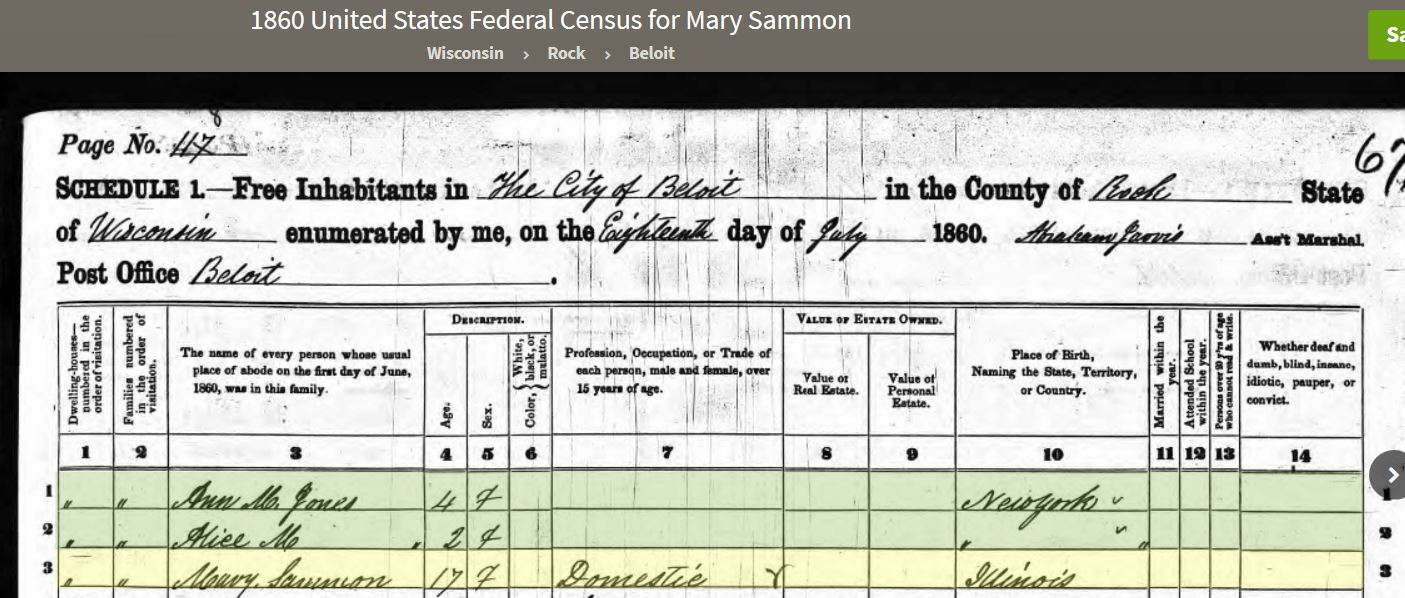 1860 United States Federal Census for Mary Sammon
Wisconsin › Rock › Beloit
Sa
8
Page No. 47
67
SCHEDULE 1.—Free Inhabitants in The City of Beloit in the County of Rock State
of Wisconsin enumerated by me, on the Eighteenth day of July 1860. Abraham Jarvis Ass't Marshal.
Post Office Beloit.
Dwelling-houses—numbered in the order of visitation.
Families numbered in the order of visitation.
The name of every person whose usual place of abode on the first day of June, 1860, was in this family.
DESCRIPTION.
Age.
Sex.
Color, { White, black, or mulatto.
Profession, Occupation, or Trade of each person, male and female, over 15 years of age.
VALUE OF ESTATE OWNED.
Value of Real Estate.
Value of Personal Estate.
Place of Birth, Naming the State, Territory, or Country.
Married within the year.
Attended School within the year.
Persons over 20 y'rs of age who cannot read & write.
Whether deaf and dumb, blind, insane, idiotic, pauper, or convict.
1 2 3 4 5 6 7 8 9 10 11 12 13 14
1 " " Ann M. Jones 4 F New York 1
2 " " Alice M " 2 F " " 2
3 " " Mary Sammon 17 F Domestic Illinois 3